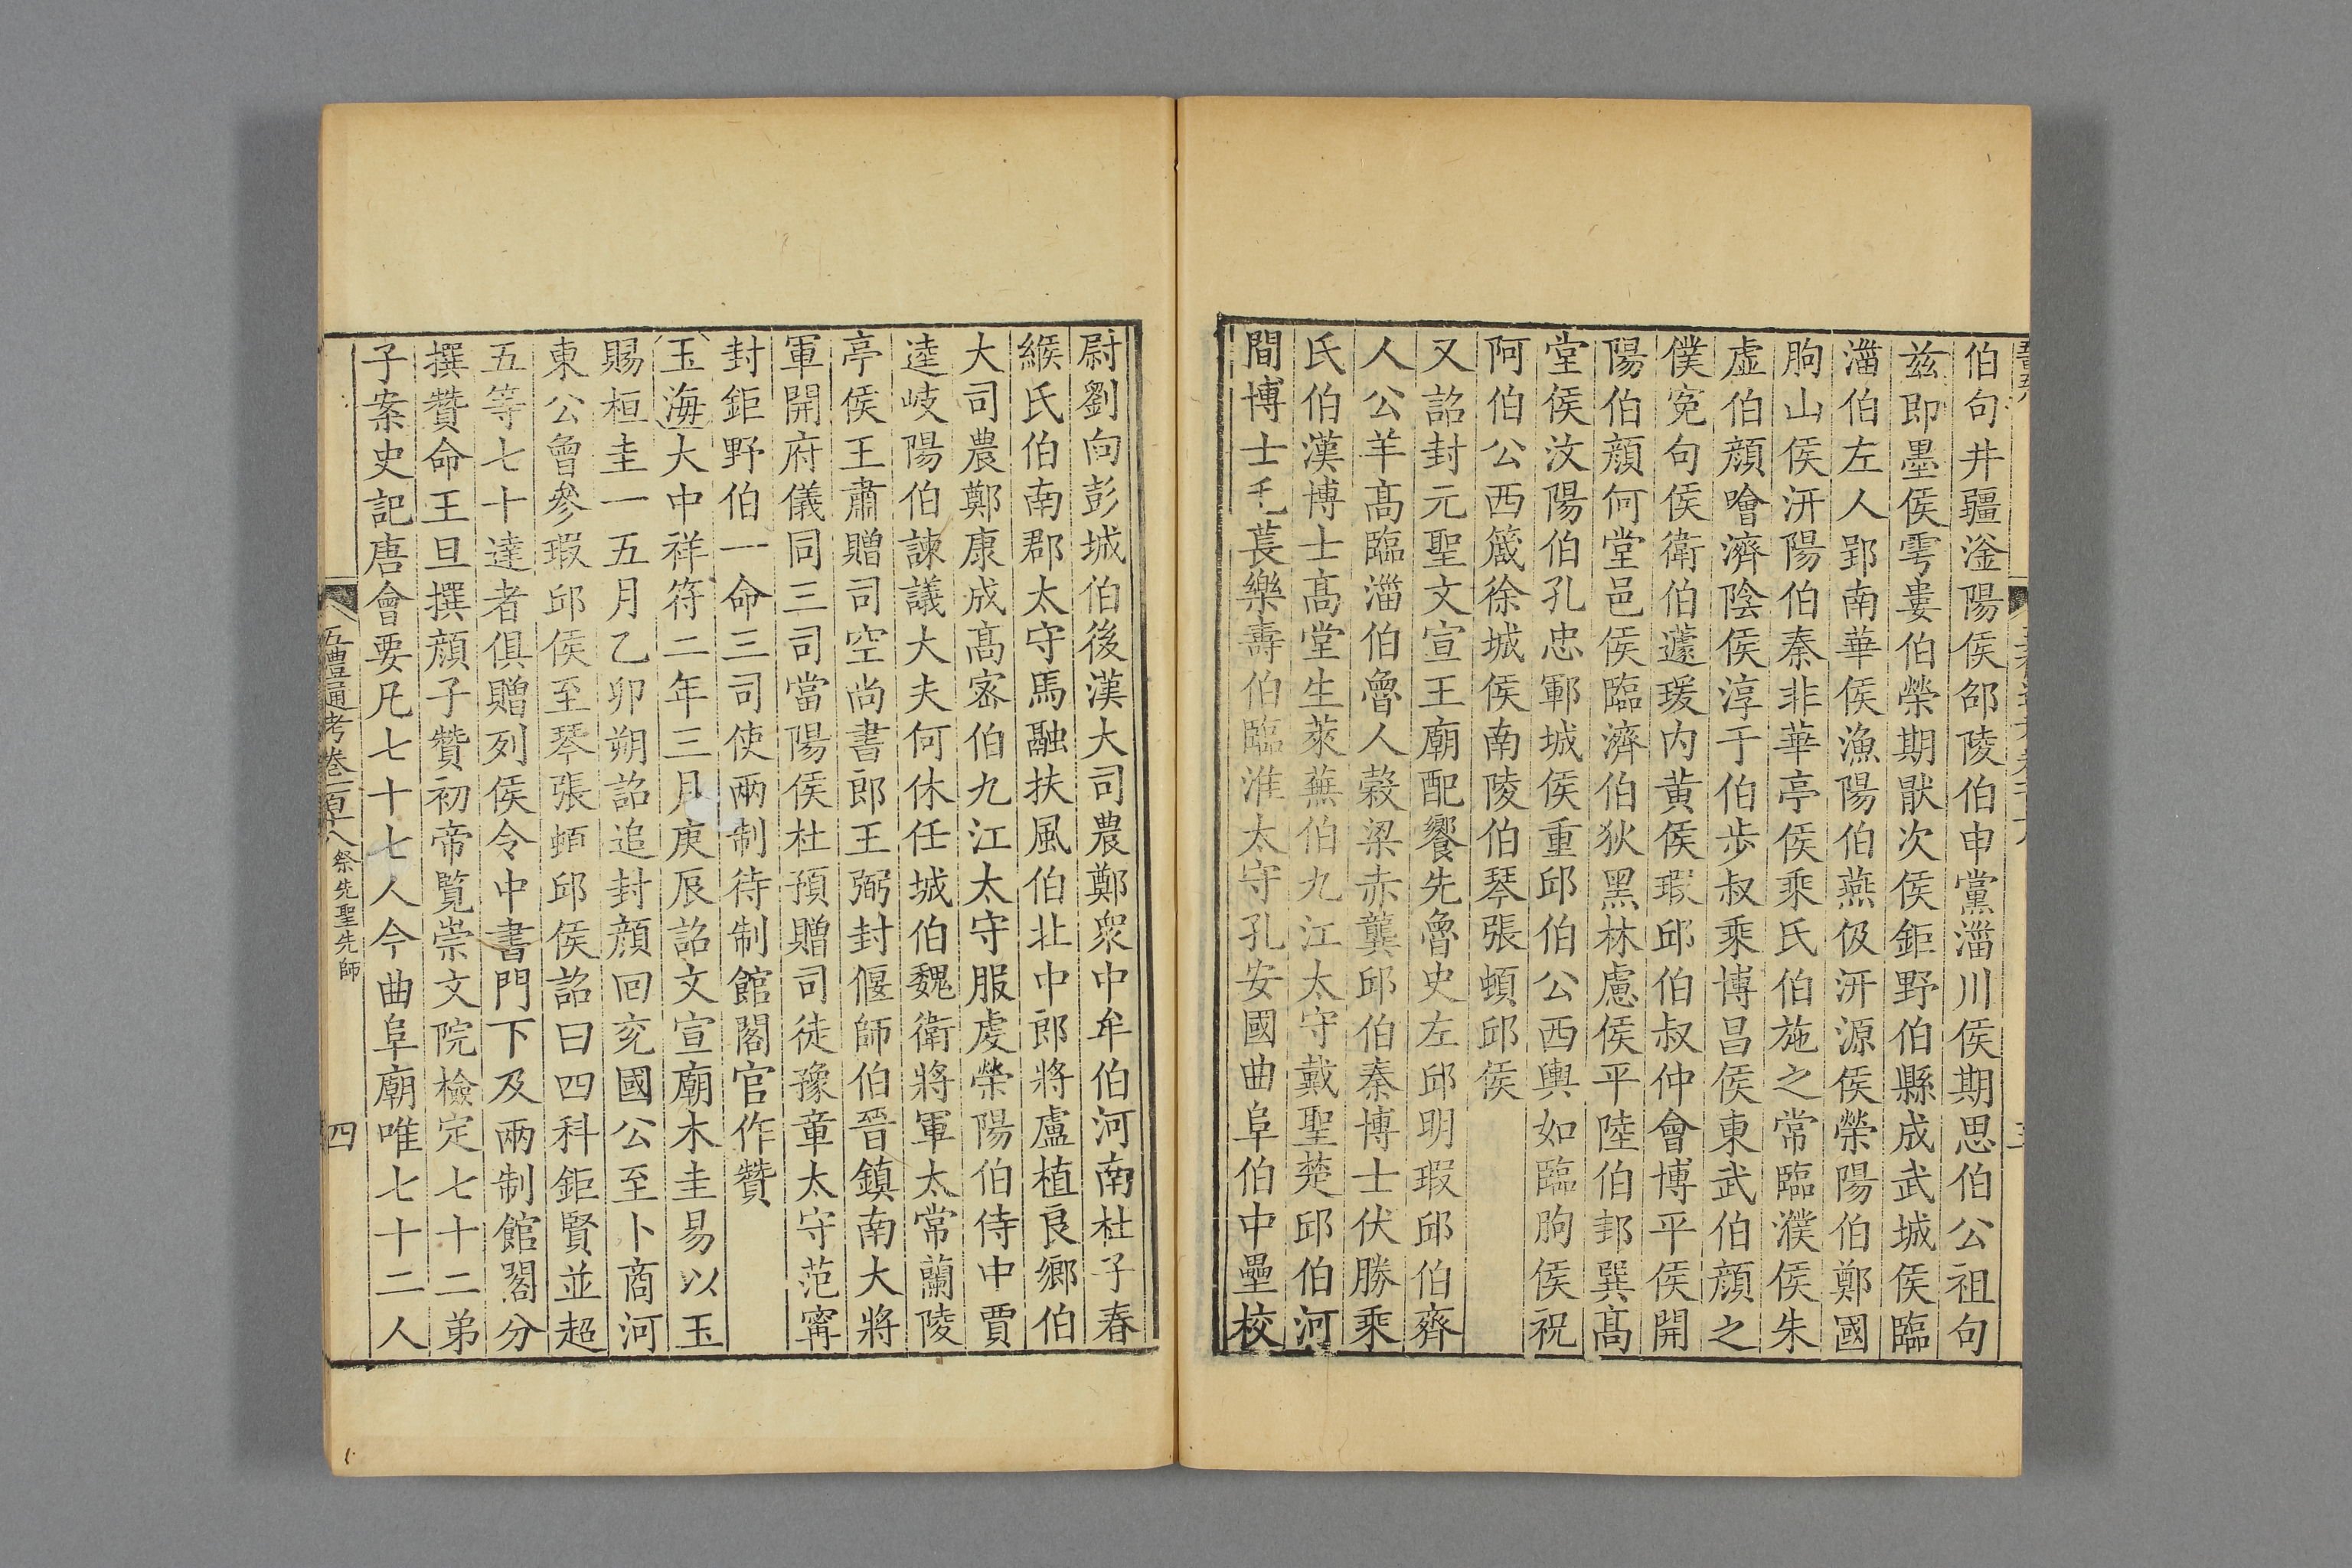 伯句井疆滏陽侯邵陵伯申黨淄川侯期思伯公祖句
茲即墨侯雩婁伯榮期猒次侯鉅野伯縣成武城侯臨
淄伯左人郢南華侯漁陽伯燕伋汧源侯滎陽伯鄭國
朐山侯汧陽伯秦非華亭侯乘氏伯施之常臨濮侯朱
虛伯顏噲濟陰侯淳于伯步叔乘博昌侯東武伯顏之
僕宛句侯衛伯蘧瑗內黃侯瑕邱伯叔仲會博平侯開
陽伯顏何堂邑侯臨濟伯狄黑林慮侯平陸伯邽巽高
堂侯汶陽伯孔忠鄆城侯重邱伯公西輿如臨朐侯祝
阿伯公西箴徐城侯南陵伯琴張頓邱侯
又詔封元聖文宣王廟配饗先魯史左邱明瑕邱伯齊
人公羊高臨淄伯魯人穀梁赤龔邱伯秦博士伏勝乘
氏伯漢博士高堂生萊蕪伯九江太守戴聖楚邱伯河
間博士毛萇樂壽伯臨淮太守孔安國曲阜伯中壘校
尉劉向彭城伯後漢大司農鄭衆中牟伯河南杜子春
緱氏伯南郡太守馬融扶風伯北中郎將盧植良鄉伯
大司農鄭康成高密伯九江太守服虔滎陽伯侍中賈
逵岐陽伯諫議大夫何休任城伯魏衛將軍太常蘭陵
亭侯王肅贈司空尚書郎王弼封偃師伯晉鎮南大將
軍開府儀同三司當陽侯杜預贈司徒豫章太守范甯
封鉅野伯一命三司使兩制待制館閣官作贊
玉海大中祥符二年三月庚辰詔文宣廟木圭易以玉
賜桓圭一五月乙卯朔詔追封顏回兗國公至卜商河
東公曾參瑕邱侯至琴張頓邱侯詔曰四科鉅賢並超
五等七十達者俱贈列侯令中書門下及兩制館閣分
撰贊命王旦撰顏子贊初帝覽崇文院檢定七十二弟
子案史記唐會要凡七十七人今曲阜廟唯七十二人
五禮通考卷一百十八 祭先聖先師 四